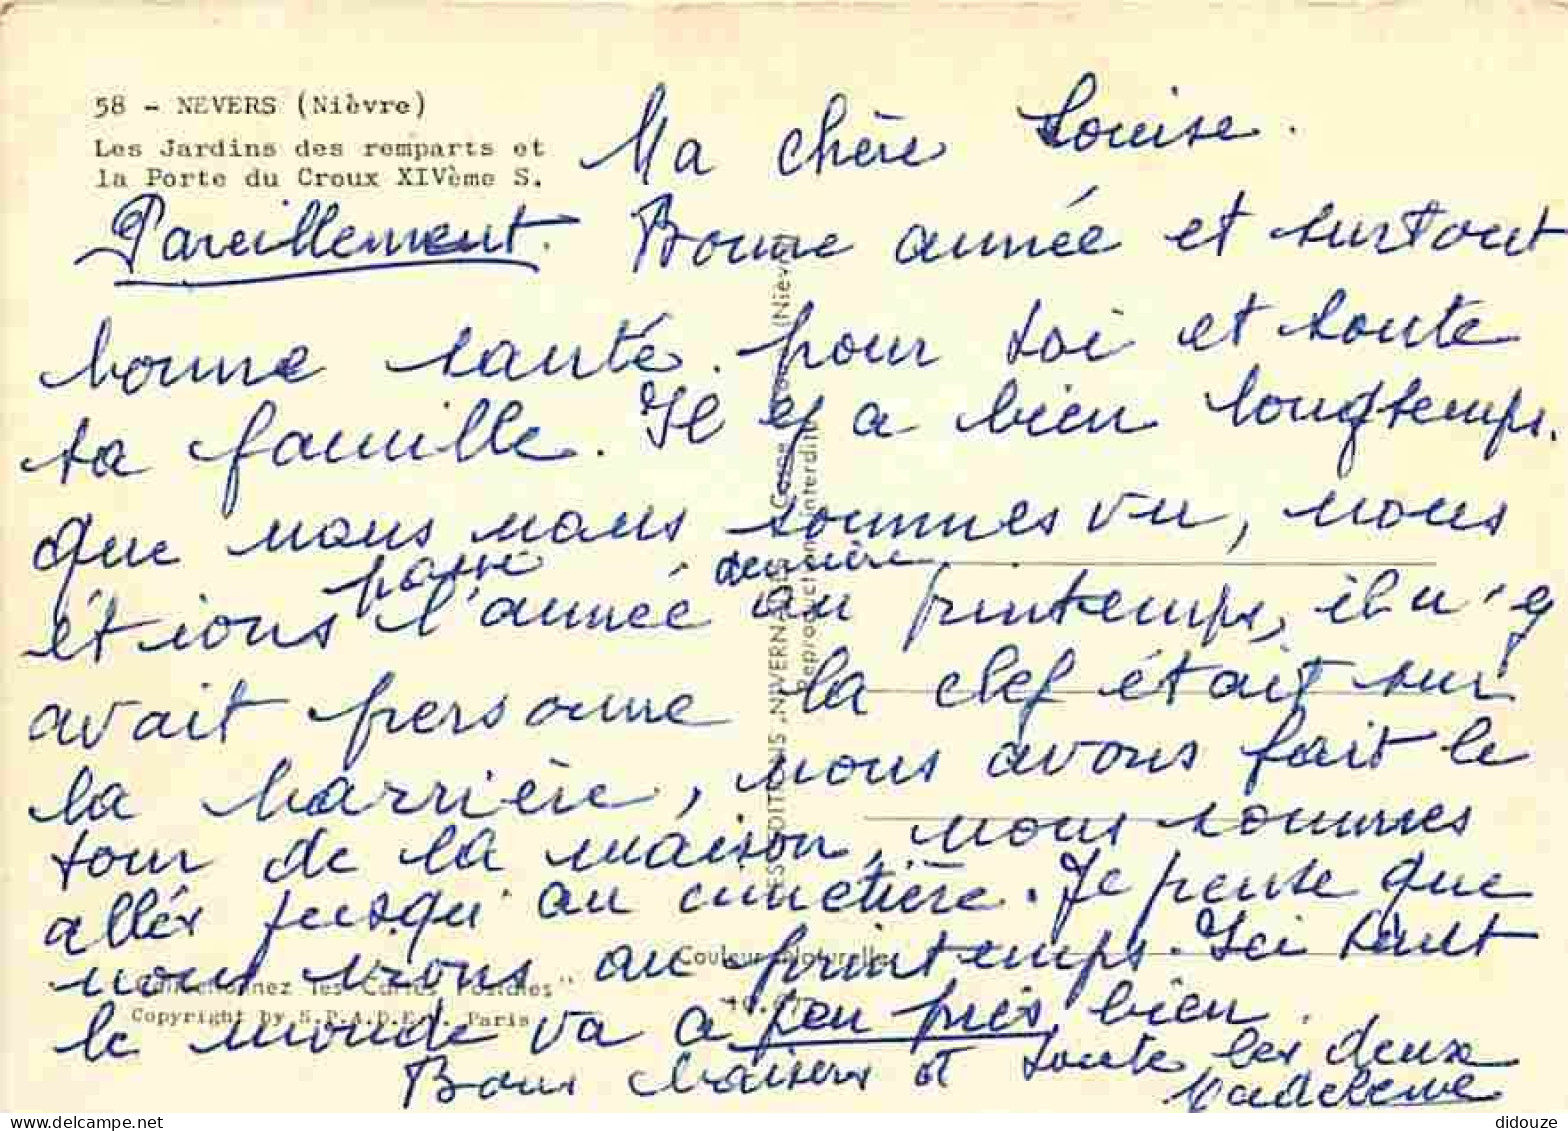 58 - NEVERS (Nièvre)
Les Jardins des remparts et
la Porte du Croux XIVème S.
Ma chère Louise.
Pareillement. Bonne année et surtout
bonne santé. pour toi et toute
ta famille. Il y a bien longtemps.
que nous nous sommes vu, nous
étions passé l'année dernière au printemps, il n'y
avait personne la clef était sur
la barrière, nous avons fait le
tour de la maison, nous sommes
allés jusqu'au cimetière. Je pense que
nous irons au printemps. Ici tout
le monde va a peu près bien.
Bons baisers a toute les deux
Madeleine
LES EDITIONS NIVERNAISES Cosne (Nièvre)
Reproduction interdite
Couleurs Naturelles
"Collectionnez les Cartes Postales"
Copyright by S.P.A.D.E.M. Paris
didouze